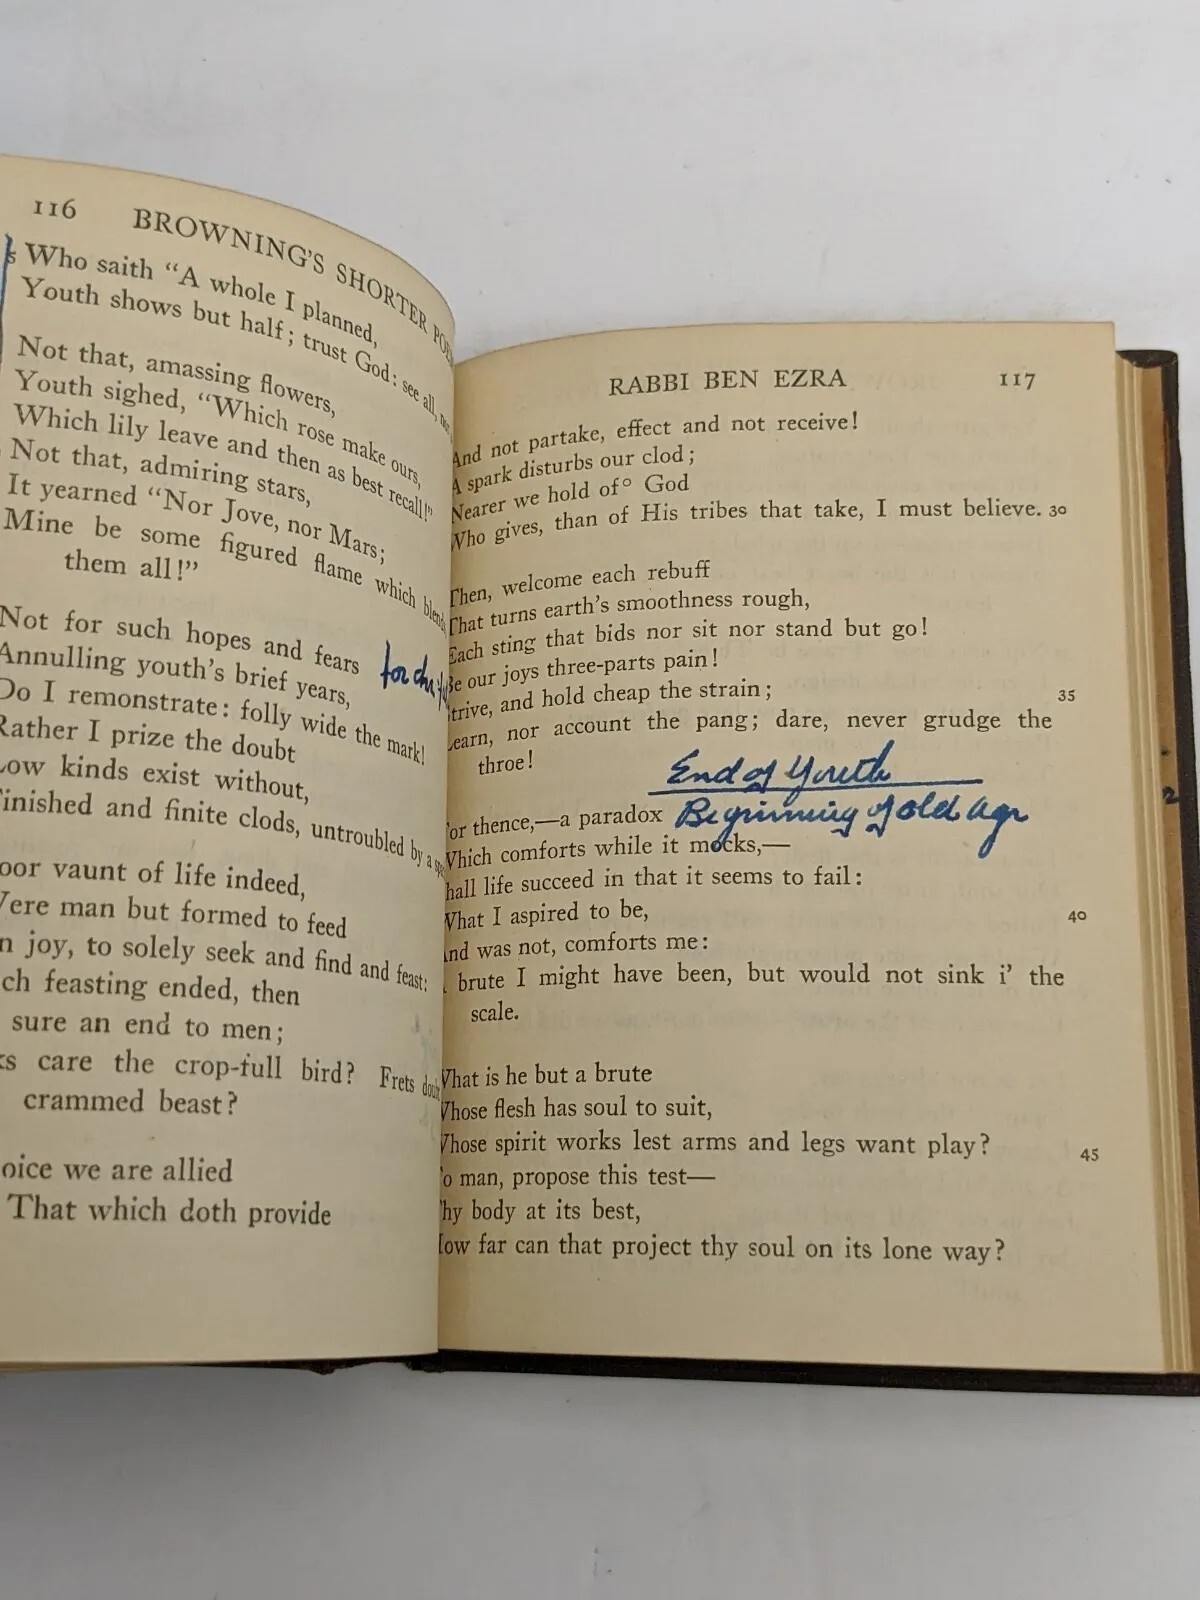 116 BROWNING'S SHORTER
Who saith "A whole I planned,
Youth shows but half; trust God: see all,
Not that, amassing flowers,
Youth sighed, "Which rose make ours,
Which lily leave and then as best recall!"
Not that, admiring stars,
It yearned "Nor Jove, nor Mars;
Mine be some figured flame which blends,
them all!"
Not for such hopes and fears
Annulling youth's brief years,
Do I remonstrate: folly wide the mark!
Rather I prize the doubt
Low kinds exist without,
Finished and finite clods, untroubled by a
oor vaunt of life indeed,
Were man but formed to feed
n joy, to solely seek and find and feast:
ch feasting ended, then
sure an end to men;
ks care the crop-full bird? Frets doubt
crammed beast?
oice we are allied
That which doth provide
RABBI BEN EZRA 117
And not partake, effect and not receive!
A spark disturbs our clod;
Nearer we hold of° God
Who gives, than of His tribes that take, I must believe. 30
Then, welcome each rebuff
That turns earth's smoothness rough,
Each sting that bids nor sit nor stand but go!
Be our joys three-parts pain!
Strive, and hold cheap the strain; 35
Learn, nor account the pang; dare, never grudge the
throe!
End of Youth
Beginning of old age
For thence,—a paradox
Which comforts while it mocks,—
hall life succeed in that it seems to fail:
What I aspired to be, 40
And was not, comforts me:
A brute I might have been, but would not sink i' the
scale.
What is he but a brute
Whose flesh has soul to suit,
Whose spirit works lest arms and legs want play? 45
To man, propose this test—
Thy body at its best,
How far can that project thy soul on its lone way?